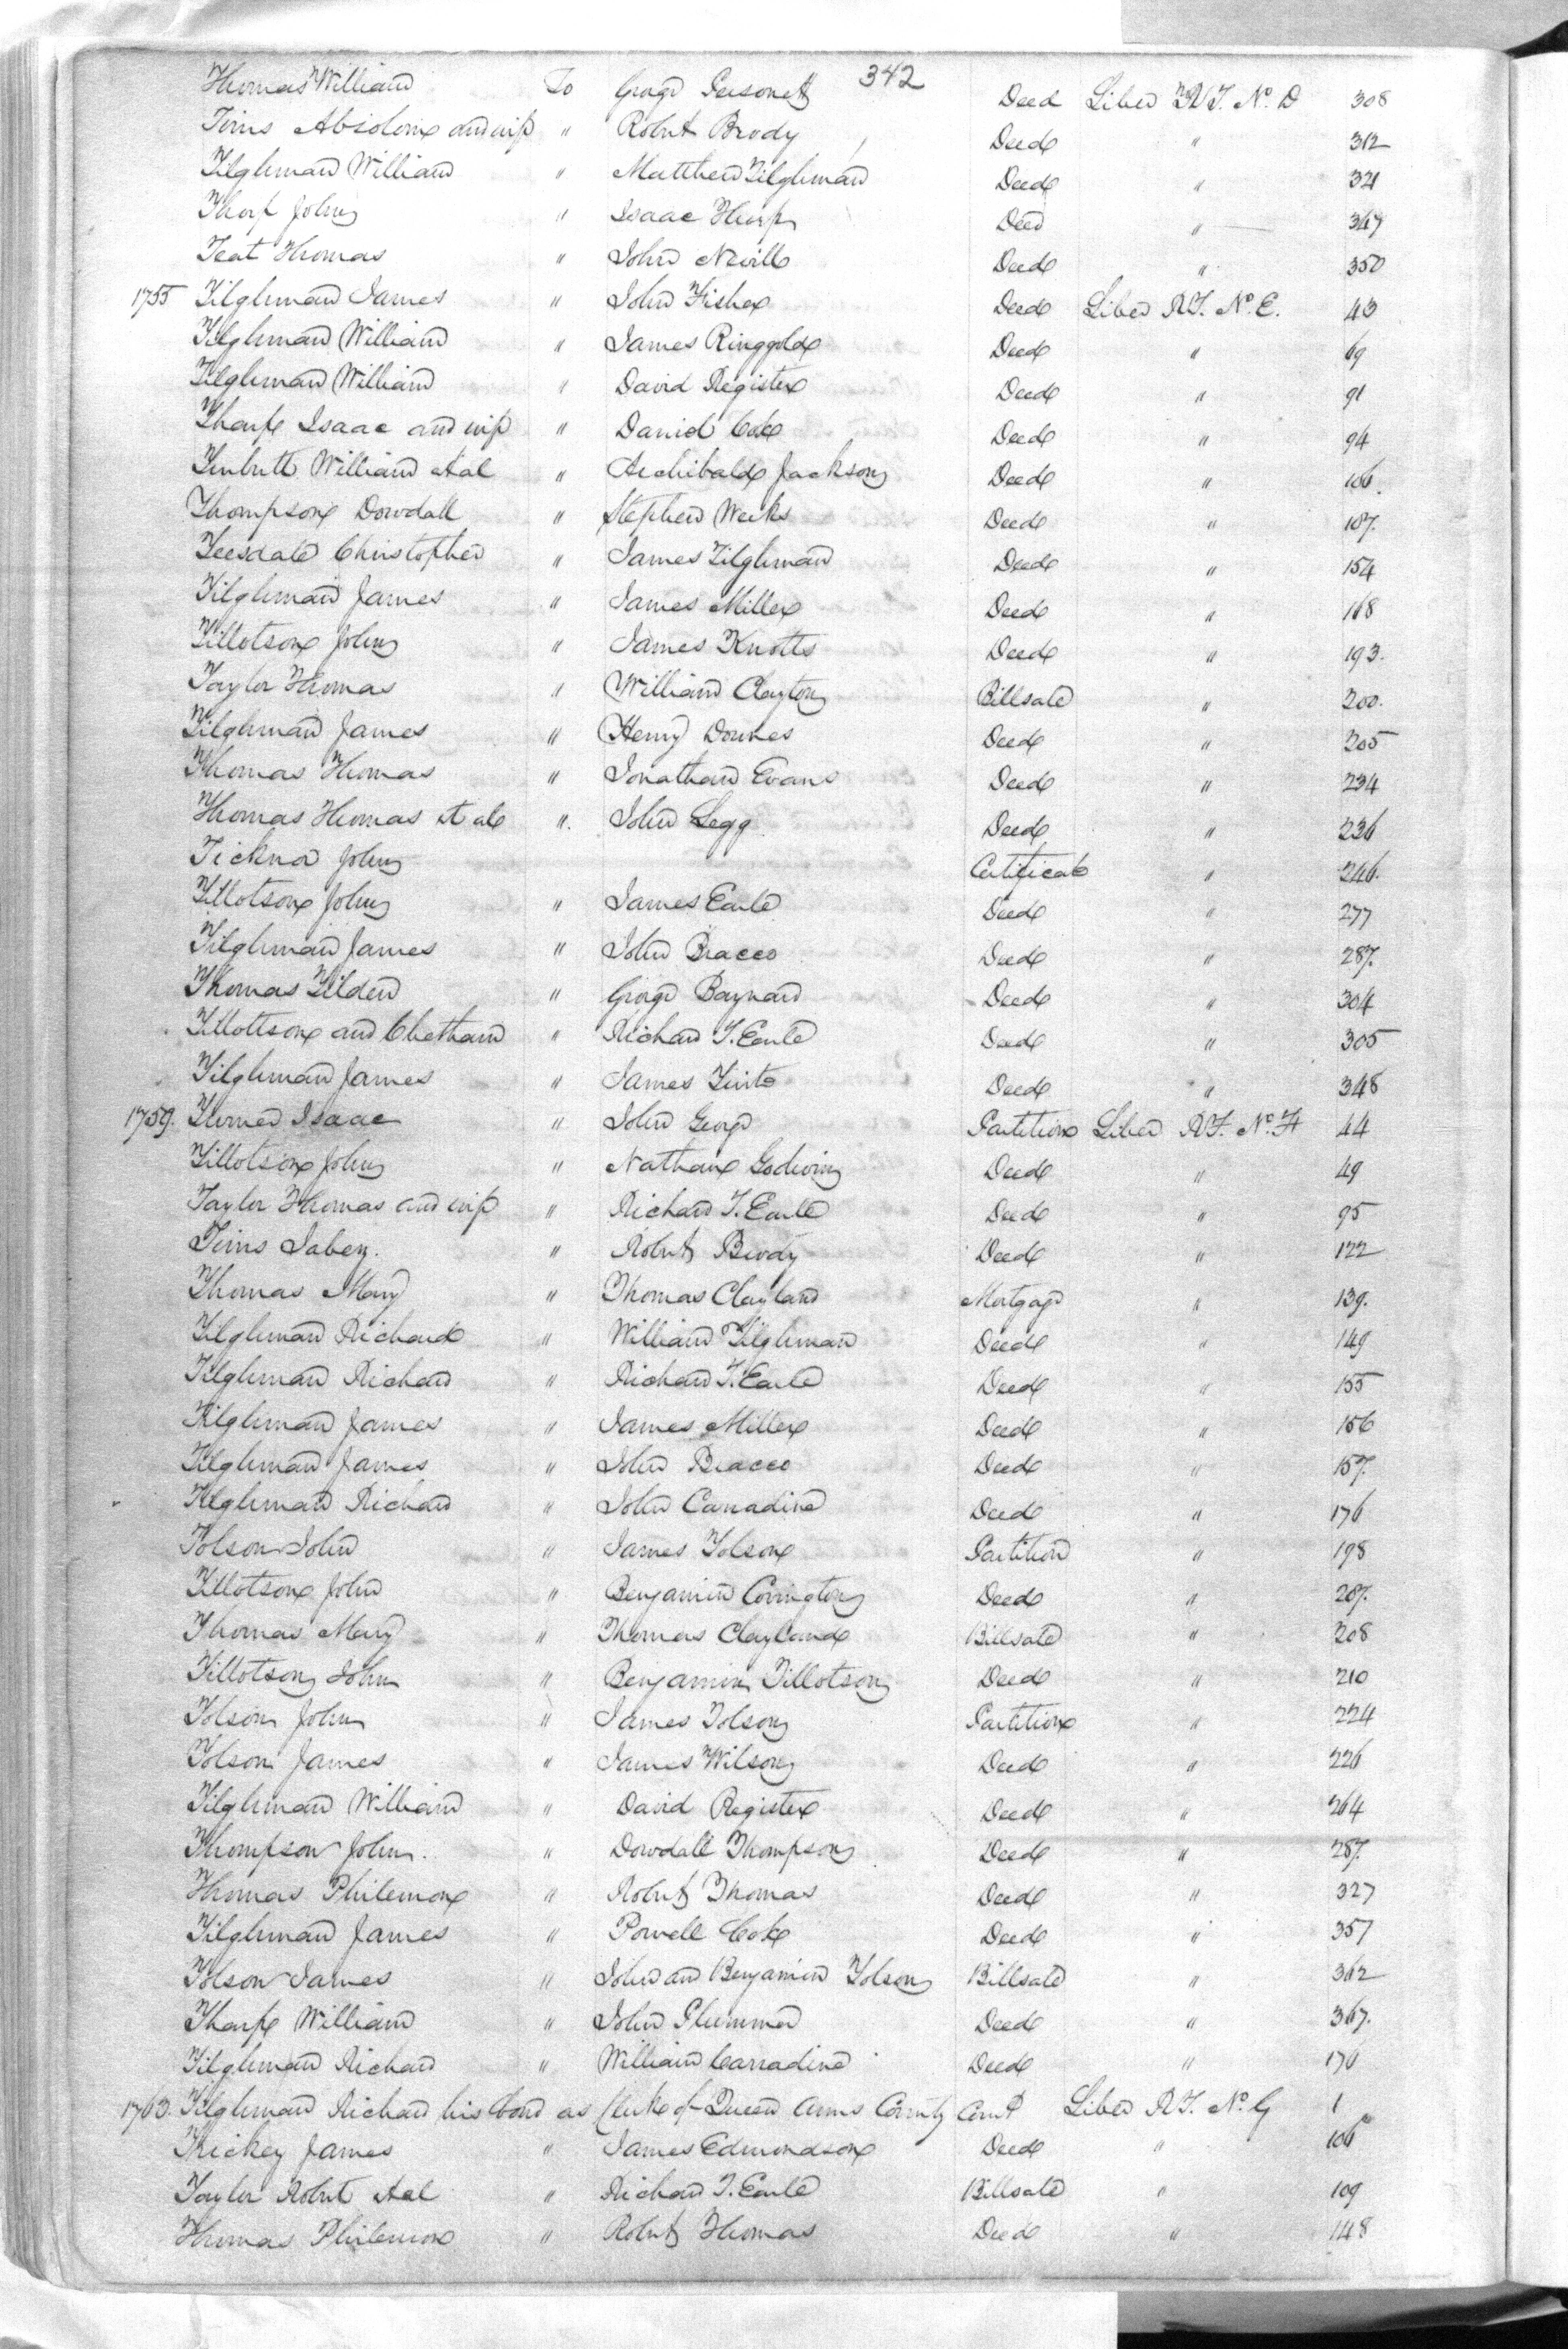 342
Thomas William To George Deed Liber RT. No. D 308
Tims Absolom and wife " Robert Brody Deed " 312
Tilghman William " Matthew Tilghman Deed " 321
Thorp John " Isaac Thorp Deed " 347
Teat Thomas " John Nevill Deed " 350
1755 Tilghman James " John Fisher Deed Liber RT. No. E. 43
Tilghman William " James Ringgold Deed " 69
Tilghman William " David Register Deed " 91
Tharp Isaac and wife " Daniel Cox Deed " 94
William et al " Archibald Jackson Deed " 106.
Thompson Dowdall " Stephen Weeks Deed " 107.
Teesdale Christopher " James Tilghman Deed " 154
Tilghman James " James Miller Deed " 168
Tillotson John " James Knotts Deed " 193.
Taylor Thomas " William Clayton Billsale " 200.
Tilghman James " Henry Downes Deed " 205
Thomas Thomas " Jonathan Evans Deed " 234
Thomas Thomas et al ". John Legg Deed " 236
Tickner John Certificate " 246.
Tillotson John " James Earle Deed " 277
Tilghman James " John Bracco Deed " 287.
Thomas Tilden " George Baynard Deed " 304
Tillottson and Chetham " Richard T. Earle Deed " 305
Tilghman James " James Deed " 348
1759. Turner Isaac " John George Partition Liber RT. No. F 44
Tillotson John " Nathan Godwin Deed " 49
Taylor Thomas and wife " Richard T. Earle Deed " 95
Tims Jabez. " Robert Brody Deed " 122
Thomas Mary " Thomas Clayland Mortgage " 139.
Tilghman Richard " William Tilghman Deed " 149
Tilghman Richard " Richard T. Earle Deed " 155
Tilghman James " James Miller Deed " 156
Tilghman James " John Bracco Deed " 157.
Tilghman Richard " John Carradine Deed " 176
Tolson John " James Tolson Partition " 198
Tillotson John " Benjamin Covington Deed " 207.
Thomas Mary " Thomas Clayland Billsale " 208
Tillotson John " Benjamin Tillotson Deed " 210
Tolson John " James Tolson Partition " 224
Tolson James " James Wilson Deed " 226
Tilghman William " David Register Deed " 264
Thompson John. " Dowdall Thompson Deed " 287.
Thomas Philemon " Robert Thomas Deed " 327
Tilghman James " Powell Cox Deed " 357
Tolson James " John and Benjamin Tolson Billsale " 362
Tharp William " John Plummer Deed " 367.
Tilghman Richard " William Carradine Deed " 176
1763. Tilghman Richard his bond as Clerk of Queen Anns County Court Liber RT. No. G 1
Trickey James " James Edmondson Deed " 106
Taylor Robert et al " Richard T. Earle Billsale " 109
Thomas Philemon " Robert Thomas Deed " 148